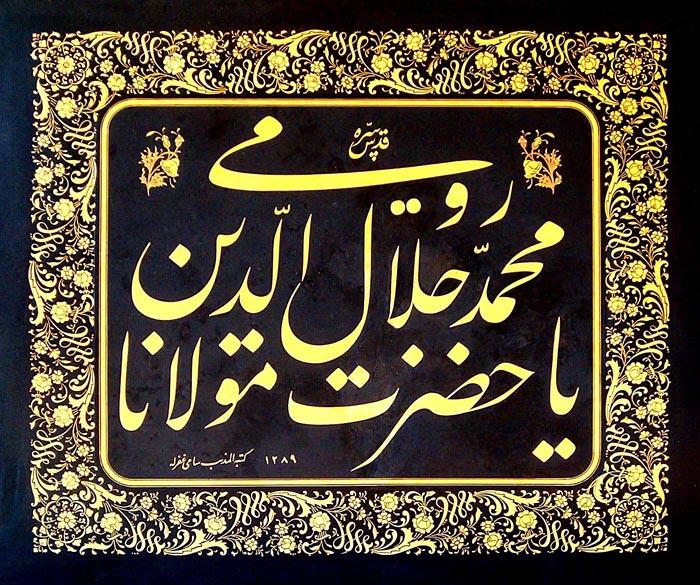 يا حضرت مولانا
محمّد جلال الدّين
رومى
قدّس سرّه
كتبه المذنب سامى غفرله ١٢٨٩